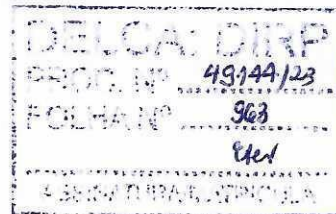 DELCA: DIRP
PROC. Nº 49.144/23
FOLHA Nº 963
ASSINATURA/MATRÍCULA